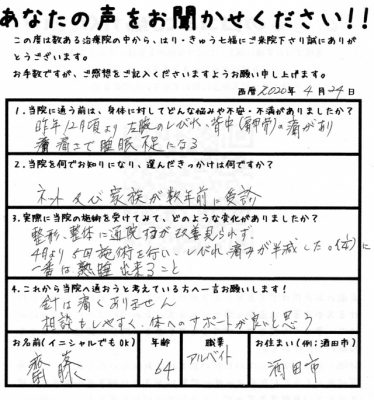 あなたの声をお聞かせください!!
この度は数ある治療院の中から、はり・きゅう七福にご来院下さり誠にありが
とうございます。
お手数ですが、ご感想をご記入くださいますようお願い申し上げます。
西暦2020年 4月24日
1.当院に通う前は、身体に対してどんな悩みや不安・不満がありましたか?
昨年12月頃より左腕のしびれ、背中(肩甲骨)の痛があり
痛さで睡眠不足になる
2.当院を何でお知りになり、選んだきっかけは何ですか?
ネット及び家族が数年前に受診
3.実際に当院の施術を受けてみて、どのような変化がありましたか?
整形、整体に通院 改善見られず、
4月より5回施術を行い、しびれ、痛みが半減した。(体)に
一番は熟睡出来ること
4.これから当院へ通おうと考えている方へ一言お願いします!
針は痛くありません
相談もしやすく、体へのサポートが良いと思う
お名前(イニシャルでもOK) 年齢 職業 お住まい(例:酒田市)
齋藤 64 アルバイト 酒田市